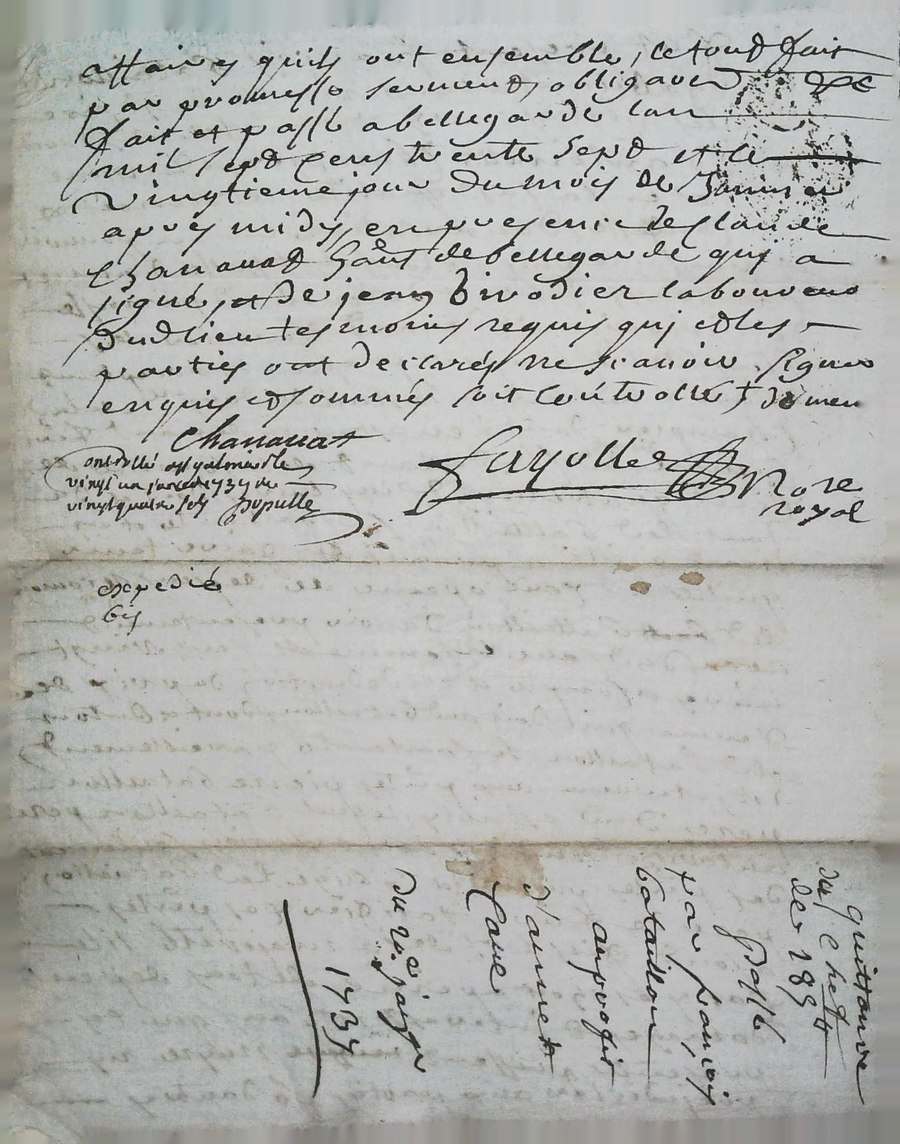 affaires quils ont ensemble, le tout fait
par promesse serment, obligaon &c
fait et passé a bellegarde lan
mil sept cens trente sept et le
vingtieme jour du mois de Janvier
apres midy, en presence de Claude
Chanavat hant de bellegarde qui a
signé, et de jean birodier laboureur
dudlieu tesmoins requis qui et les
parties ont declarés ne scavoir signer
enquis et sommés soit controllé
Chanavat
Fayolle Nore
royal
controllé a st galmier le
vingt un janvier 1737 Reu
vingt quatre sols
expedié
bis
quittance
du
de 189
passé
par francois
bataillon
au proffit
d'annet
Cave
du 20e janer
1737